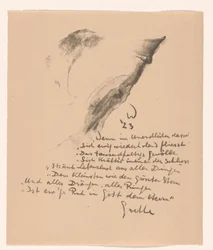 W
23
Wenn im Unendlichen
Sich ewig wiederholend fliesst
Das tausendfaltige Gewölbe
Sich kräftig
Strömt Lebenslust aus allen Dingen
Dem Kleinsten wie dem größten Stern
Und alles Drängen, alles Ringen
Ist ew'ge Ruh in Gott dem Herrn
Goethe